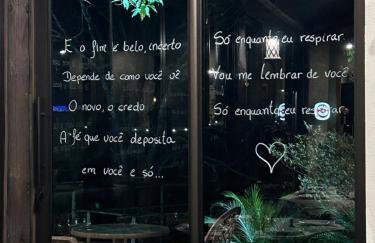 E o fim é belo, incerto
Depende de como você vê
O novo, o credo
A fé que você deposita
em você e só...
Só enquanto eu respirar
Vou me lembrar de você
Só enquanto eu respirar